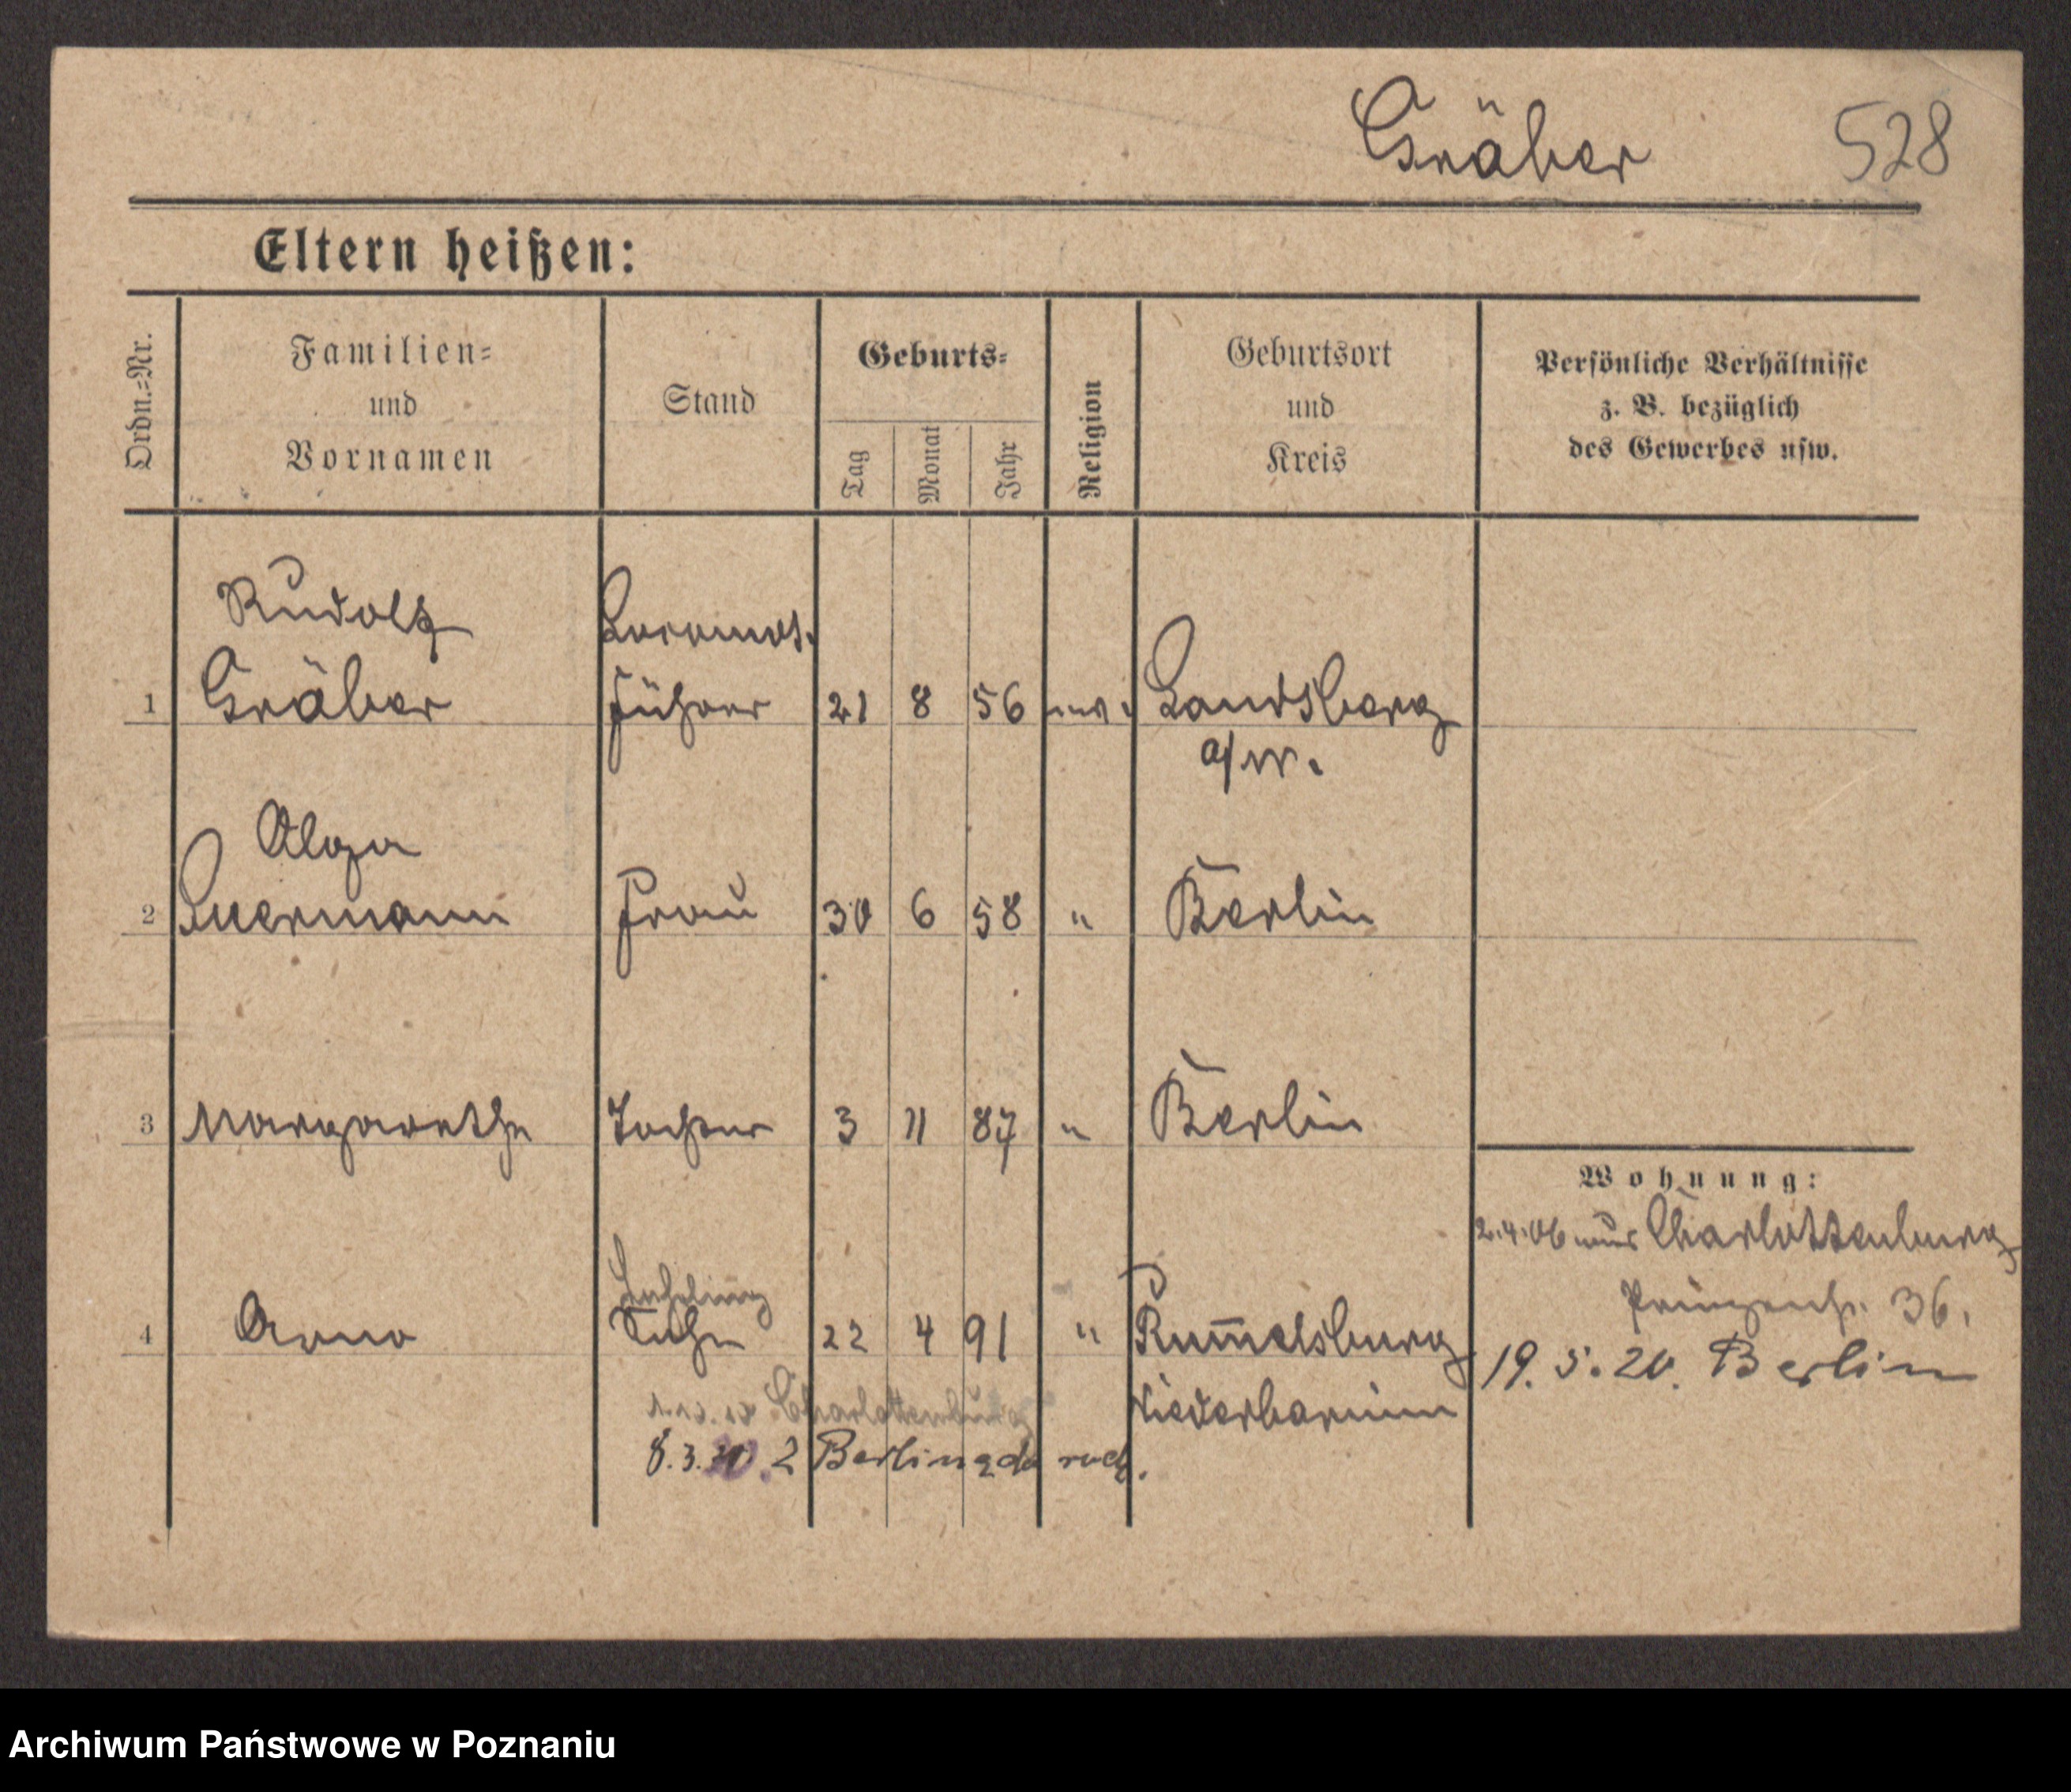 Gräber 528
Eltern heißen:
Ordn.=Nr.
Familien=
und
Vornamen
Stand
Geburts=
Tag
Monat
Jahr
Religion
Geburtsort
und
Kreis
Persönliche Verhältnisse
z. B. bezüglich
des Gewerbes usw.
Rudolf Locomot.
1 Gräber führer 21 8 56 ev. Landsberg
a/W.
Olga
2 Suermann Frau 30 6 58 " Berlin
3 Margarethe Tochter 3 11 87 " Berlin
Wohnung:
2.4.06 Charlottenburg
Lehrling
36.
4 Arno Sohn 22 4 91 " Rummelsburg
19. 5. 20. Berlin
Charlottenburg Niederbarnim
8.3. 2 Berlin
Archiwum Państwowe w Poznaniu